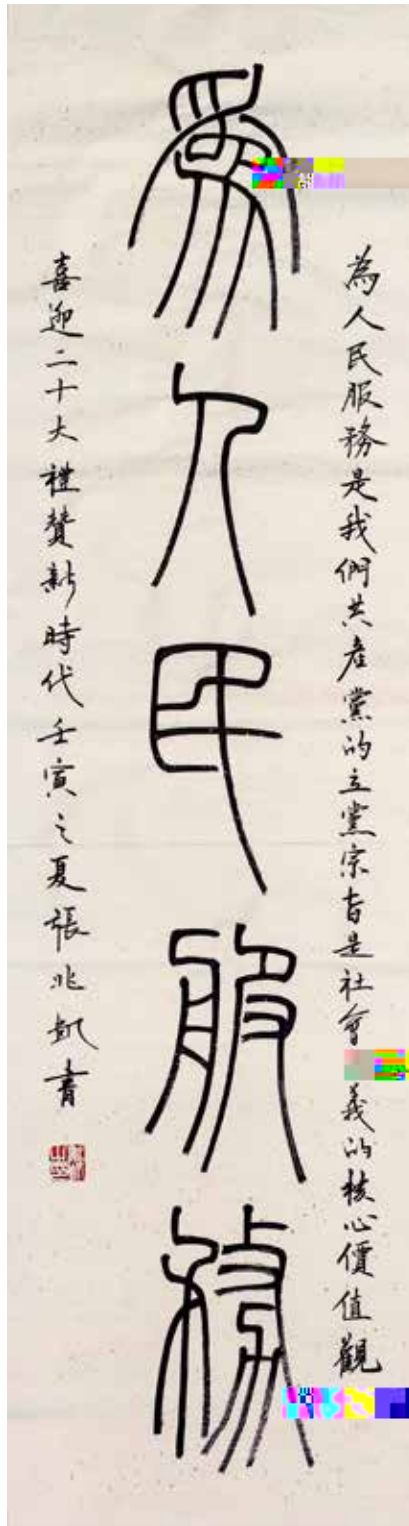 為人民服務是我們共产黨的立黨宗旨是社會義的核心價值觀
為人民服務
喜迎二十大禮赞新時代壬寅之夏張兆凱書